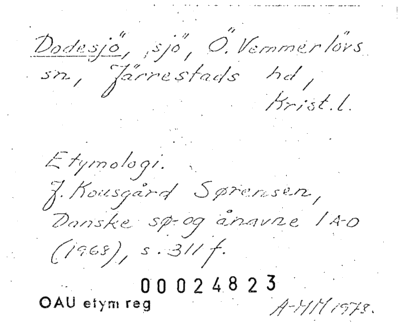 Dodesjö, sjö, Ö. Vemmerlövs
sn, Järrestads hd,
Krist.l.
Etymologi.
J. Kousgård Sørensen,
Danske sø- og ånavne 1 A-D
(1968), s. 311 f.
00024823
OAU etym reg
A-MM 1973.